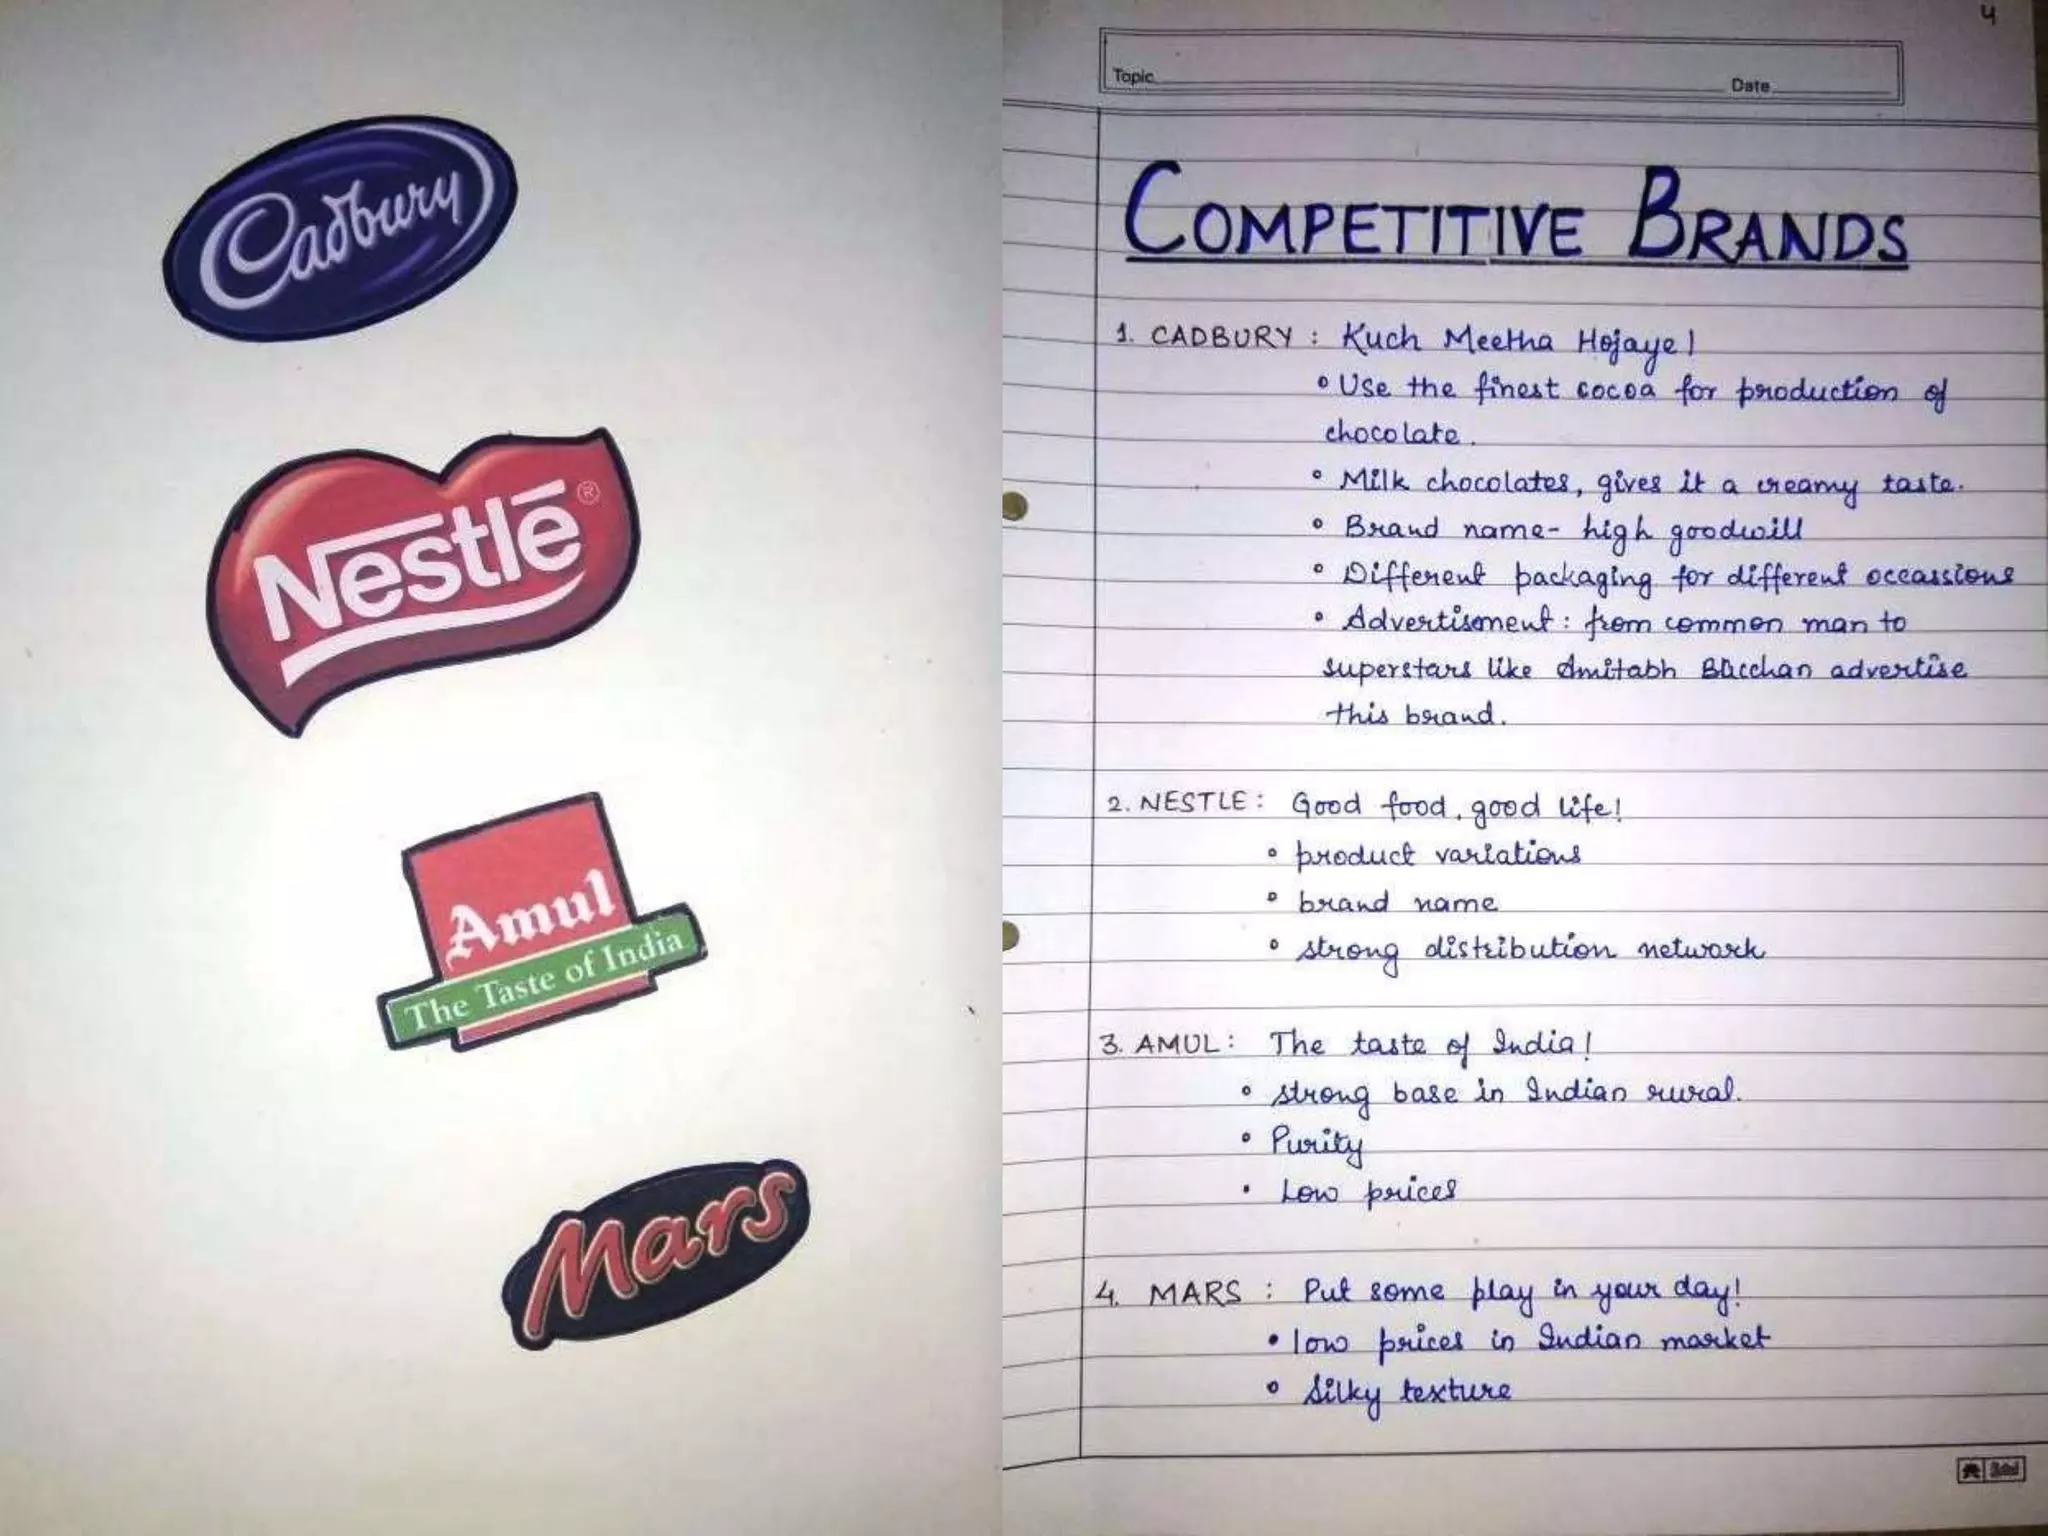 Cadbury
Nestlē®
Amul
The Taste of India
Mars
4
Topic
Date
COMPETITIVE BRANDS
1. CADBURY : Kuch Meetha Hojaye!
• Use the finest cocoa for production of
chocolate.
• Milk chocolates, gives it a creamy taste.
• Brand name- high goodwill
• Different packaging for different occassions
• Advertisment : from common man to
superstars like Amitabh Bacchan advertise
this brand.
2. NESTLE : Good food, good life!
• product variations
• brand name
• strong distribution network
3. AMUL : The taste of India!
• strong base in Indian rural.
• Purity
• Low prices
4. MARS : Put some play in your day!
• low prices in Indian market
• Silky texture